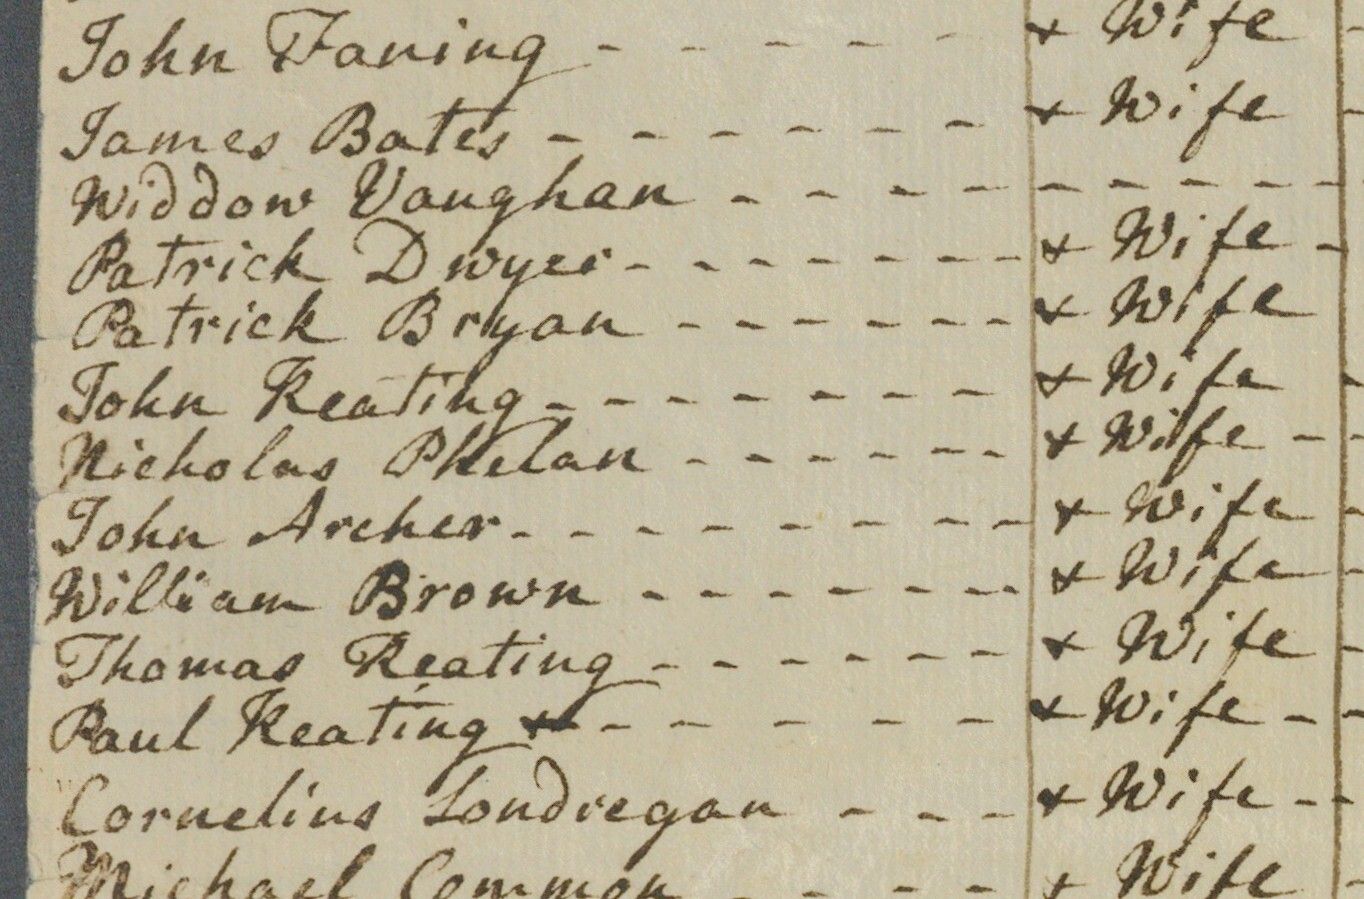 John Faning - - - - - - + Wife -
James Bates - - - - - - - + Wife -
Widdow Vaughan - - - - - - - - - - -
Patrick Dwyer - - - - - - - - + Wife -
Patrick Bryan - - - - - - - + Wife
John Keating - - - - - - - - + Wife -
Nicholas Phelan - - - - - - - + Wife - -
John Archer - - - - - - - - - + Wife -
William Brown - - - - - - - - + Wife -
Thomas Keating - - - - - - - + Wife -
Paul Keating + - - - - - - + Wife - -
Cornelius Londregan - - - - + Wife - -
Michael Common - - - - + Wife -